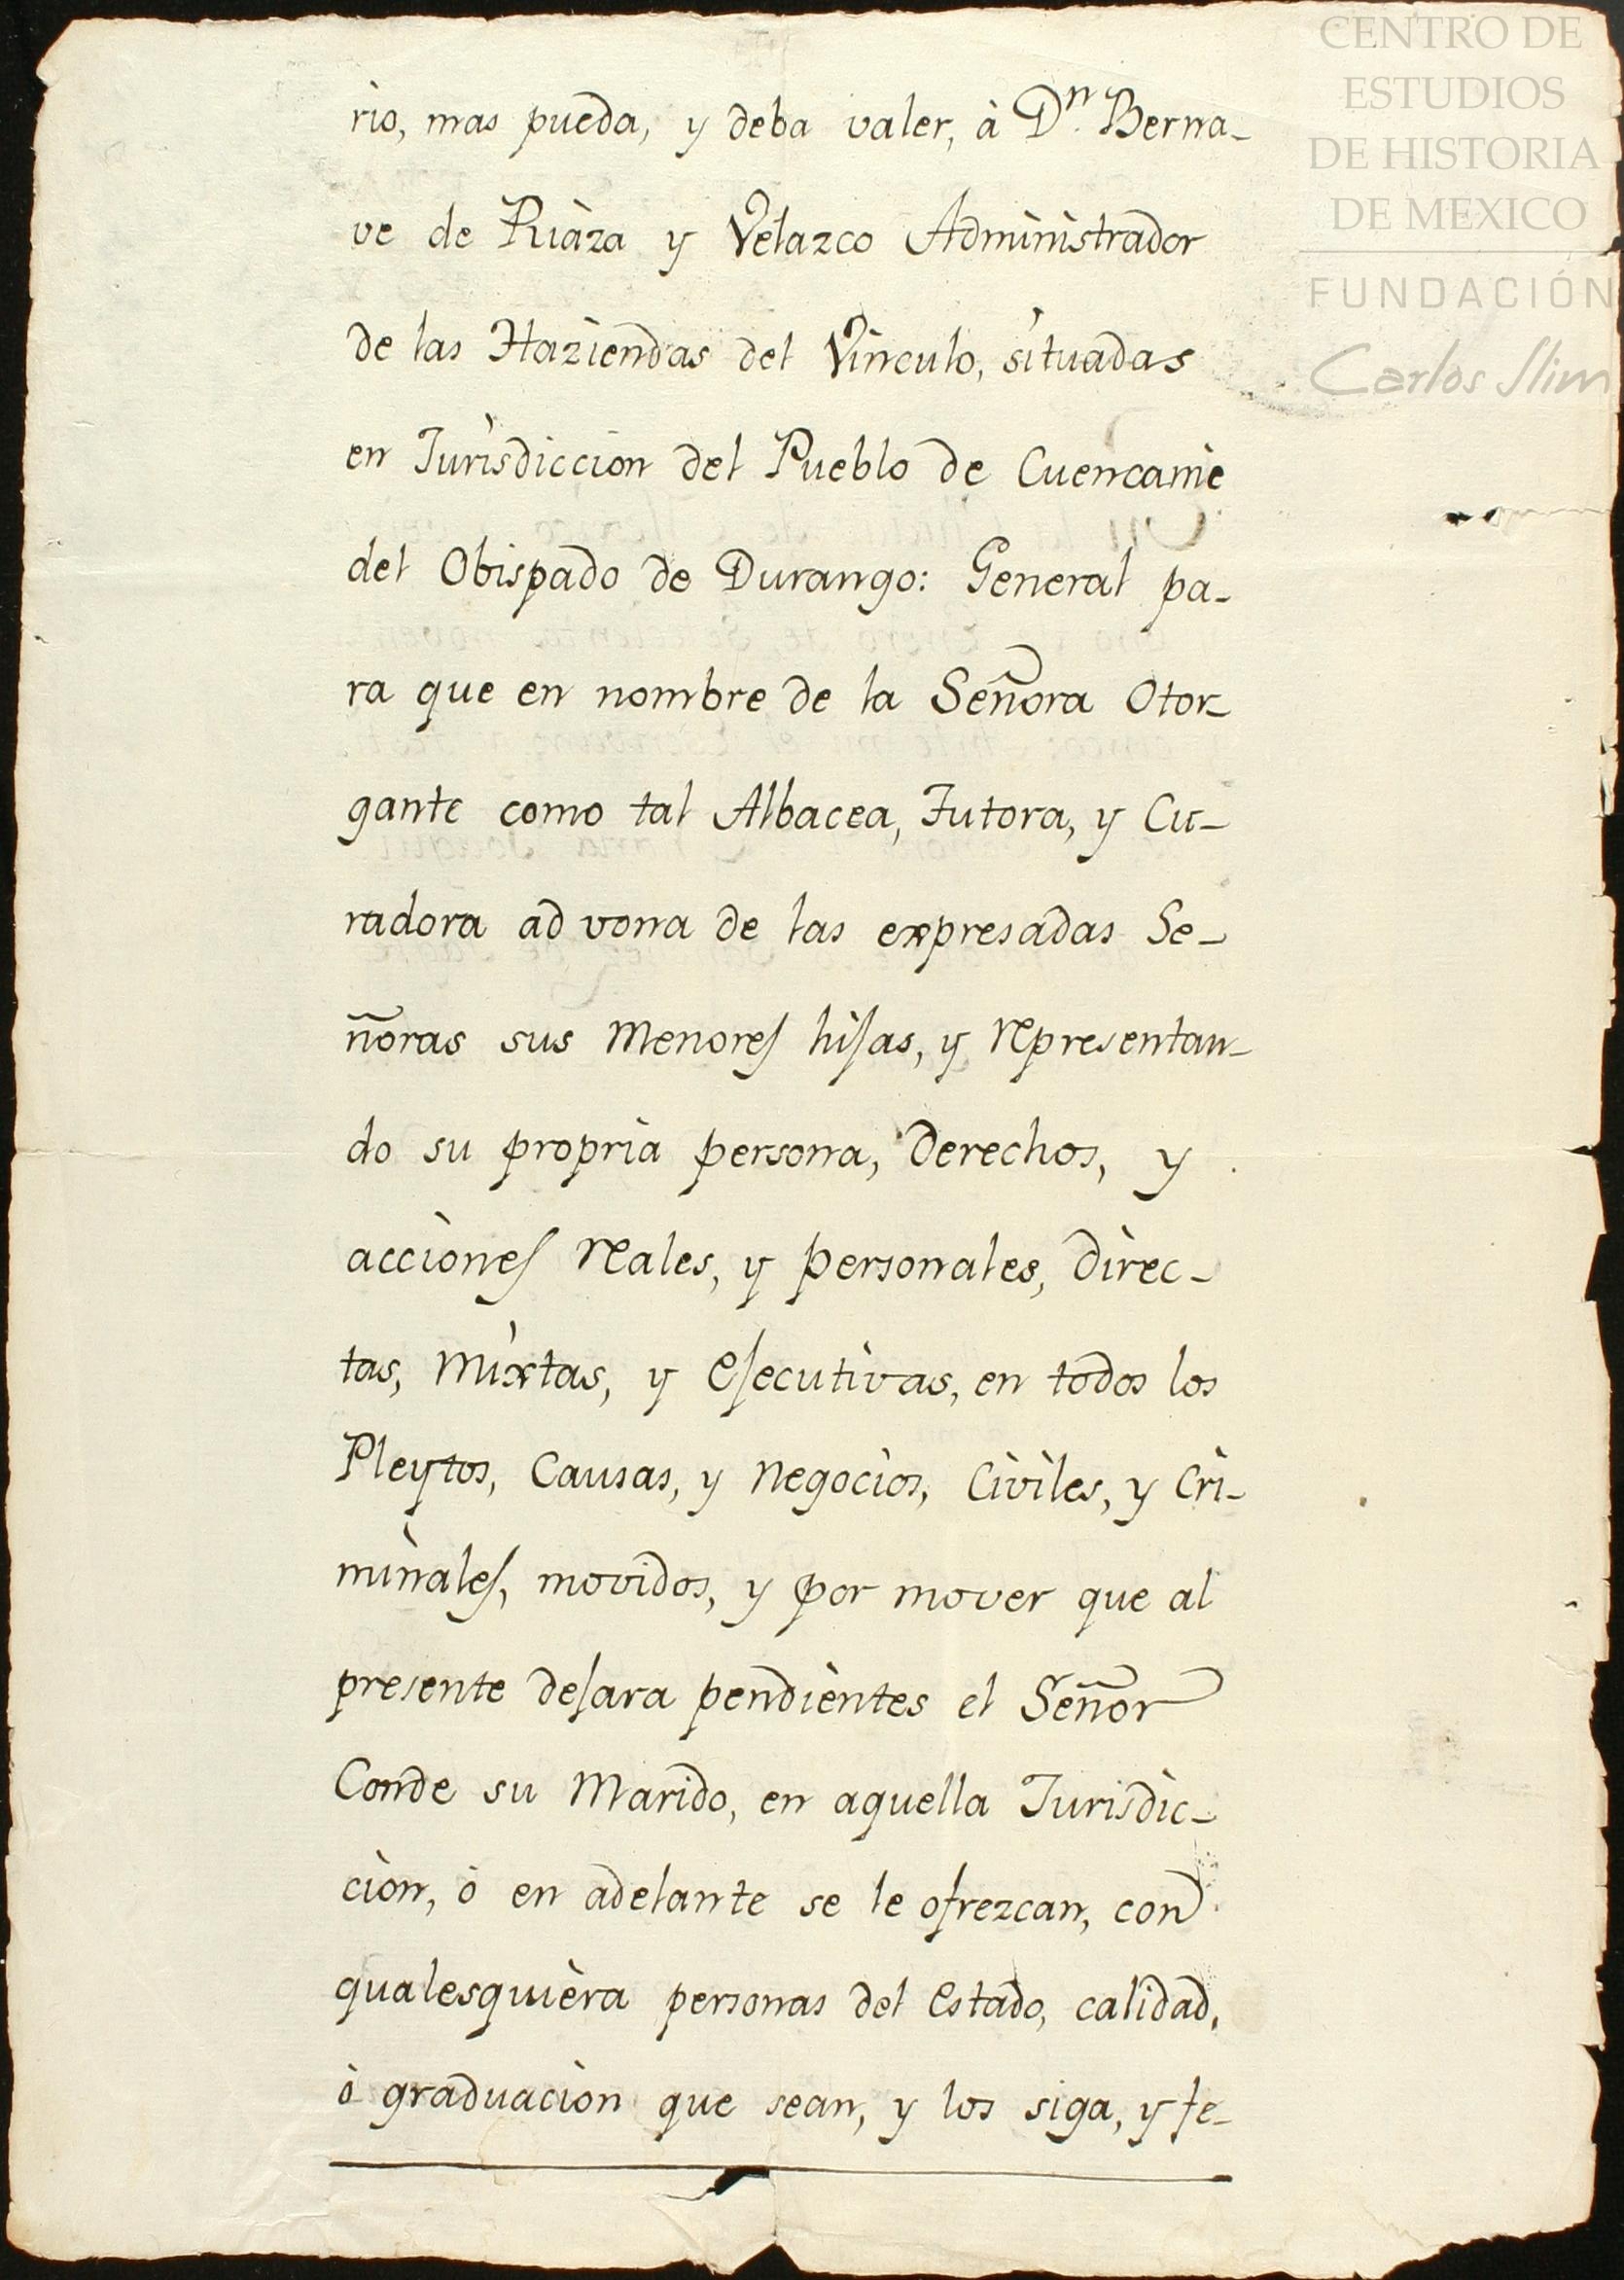 rio, mas pueda, y deba valer, à Dn. Berna-
ve de Riàza y Velazco Administrador
de las Haziendas del Vinculo, situadas
en Jurisdiccion del Pueblo de Cuencame
del Obispado de Durango: General pa-
ra que en nombre de la Señora Otor-
gante como tal Albacea, Tutora, y Cu-
radora ad vona de las expresadas Se-
ñoras sus Menores hijas, y representan-
do su propria persona, derechos, y
acciones reales, y personales, direc-
tas, mixtas, y ejecutivas, en todos los
Pleytos, Causas, y negocios, Civiles, y Cri-
minales, movidos, y por mover que al
presente dejara pendientes el Señor
Conde su Marido, en aquella Jurisdic-
cion, ò en adelante se le ofrezcan, con
qualesquièra personas del estado, calidad,
ò graduacion que sean, y los siga, y fe-
CENTRO DE
ESTUDIOS
DE HISTORIA
DE MEXICO
FUNDACIÓN
Carlos Slim